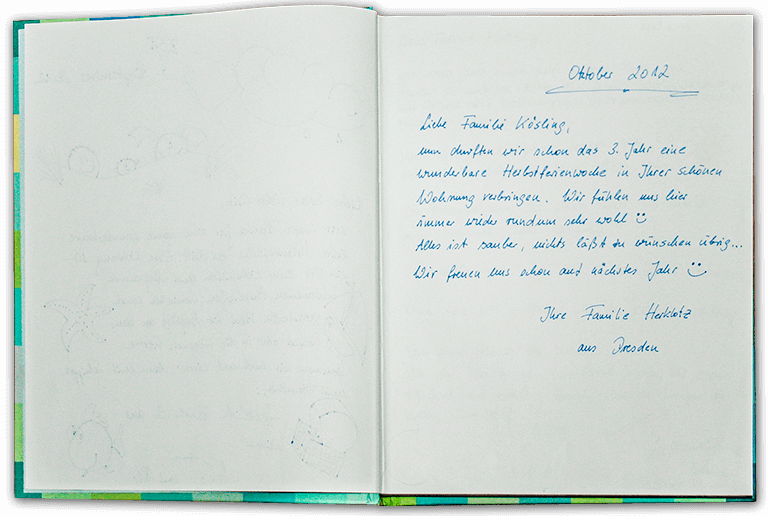 Oktober 2012
Liebe Familie Kösling,
nun durften wir schon das 3. Jahr eine
wunderbare Herbstferienwoche in Ihrer schönen
Wohnung verbringen. Wir fühlen uns hier
immer wieder rundum sehr wohl
Alles ist sauber, nichts läßt zu wünschen übrig...
Wir freuen uns schon auf nächstes Jahr
Ihre Familie Herklotz
aus Dresden